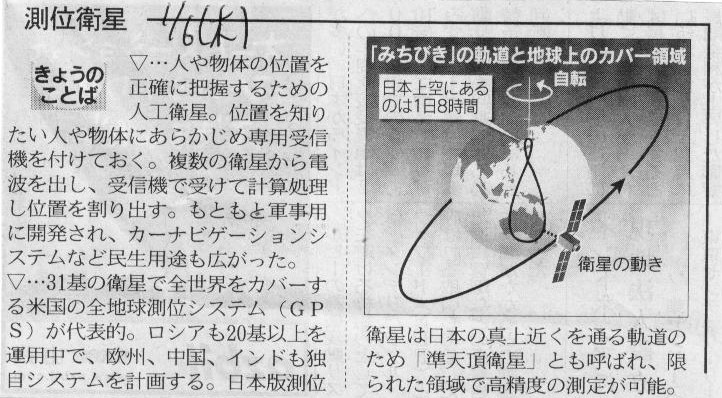 測位衛星
1/6(木)
きょうの
ことば
▽…人や物体の位置を
正確に把握するための
人工衛星。位置を知り
たい人や物体にあらかじめ専用受信
機を付けておく。複数の衛星から電
波を出し、受信機で受けて計算処理
し位置を割り出す。もともと軍事用
に開発され、カーナビゲーションシ
ステムなど民生用途も広がった。
▽…31基の衛星で全世界をカバーす
る米国の全地球測位システム（ＧＰ
Ｓ）が代表的。ロシアも20基以上を
運用中で、欧州、中国、インドも独
自システムを計画する。日本版測位
「みちびき」の軌道と地球上のカバー領域
日本上空にある
のは1日8時間
自転
衛星の動き
衛星は日本の真上近くを通る軌道の
ため「準天頂衛星」とも呼ばれ、限
られた領域で高精度の測定が可能。